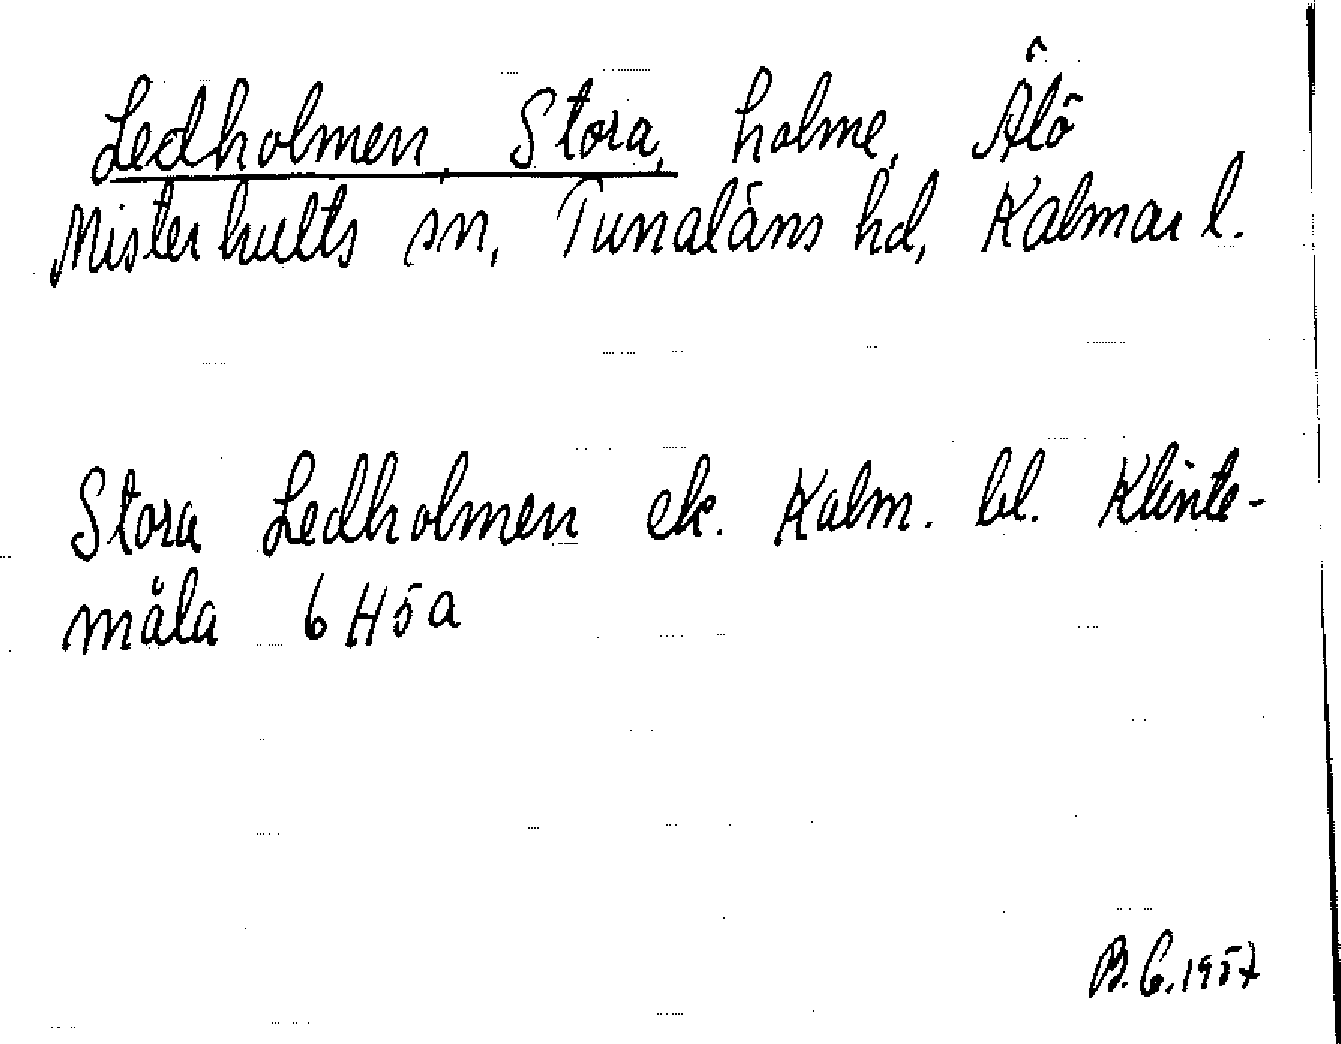 Ledholmen, Stora, holme, Ålö
Misterhults sn, Tunaläns hd, Kalmar l.
Stora Ledholmen ek. Kalm. bl. Klinte-
måla 6 H5a
B.C. 1957